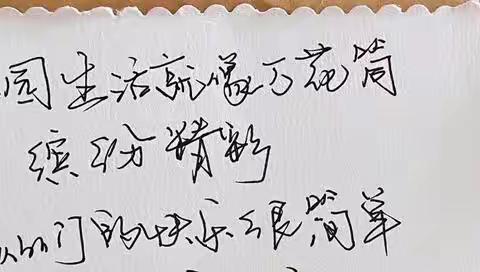 园生活就像万花筒
缤纷精彩
们的快乐很简单